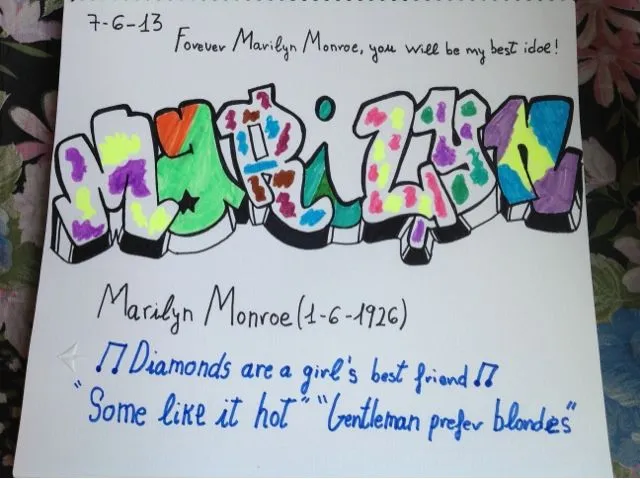 7-6-13
Forever Marilyn Monroe, you will be my best idol!
MARiLYN
Marilyn Monroe (1-6-1926)
♫ Diamonds are a girl's best friend ♫
"Some like it hot" "Gentleman prefer blondes"